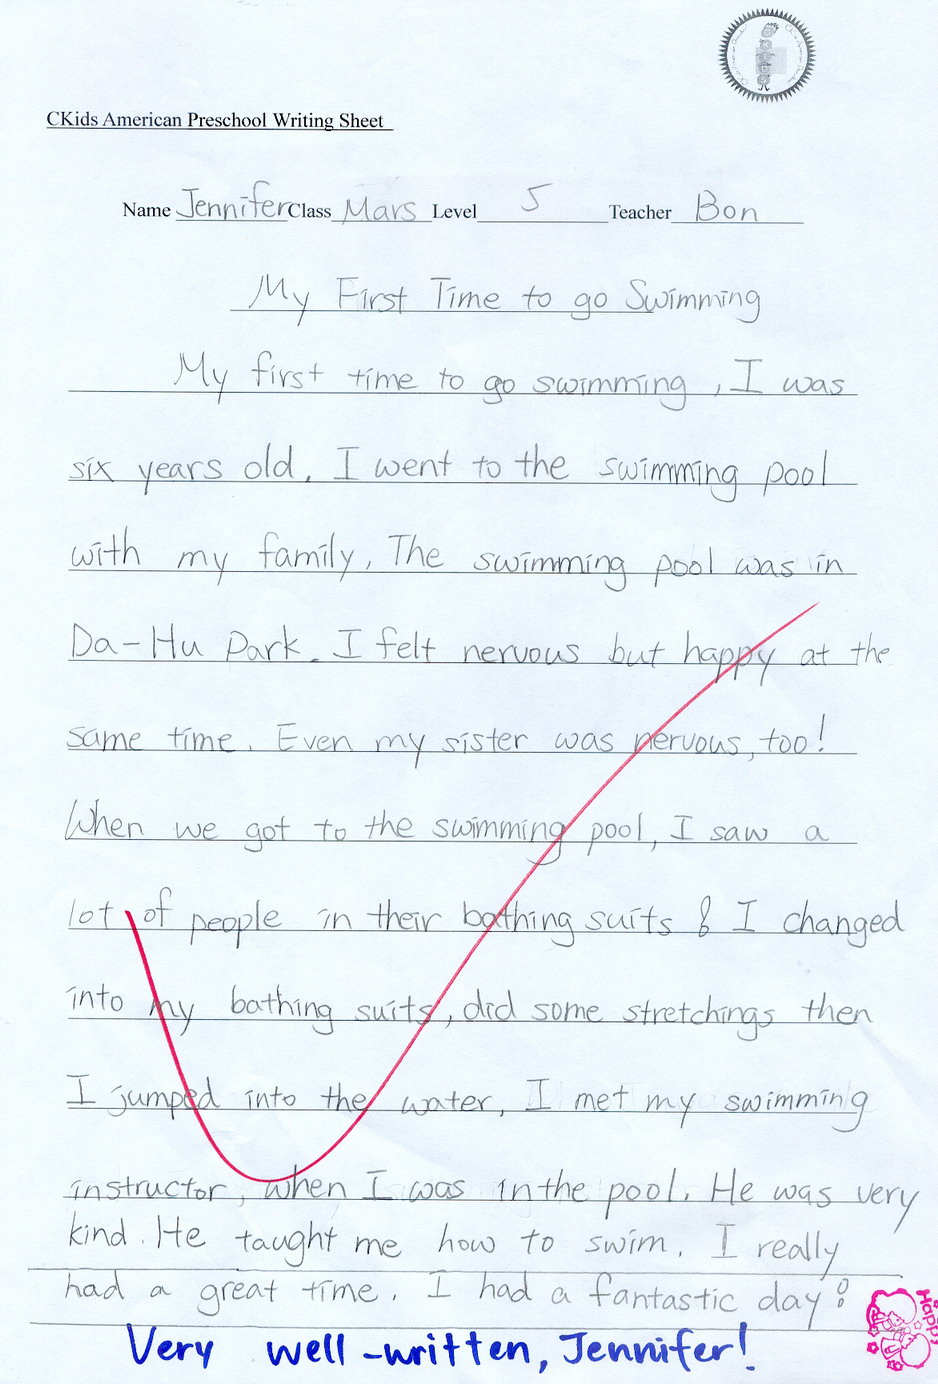 CKids American Preschool Writing Sheet
Name Jennifer Class Mars Level 5 Teacher Bon
My First Time to go Swimming
My first time to go swimming, I was
six years old. I went to the swimming pool
with my family. The swimming pool was in
Da-Hu Park. I felt nervous but happy at the
same time. Even my sister was nervous, too!
When we got to the swimming pool, I saw a
lot of people in their bathing suits & I changed
into my bathing suits, did some stretchings then
I jumped into the water. I met my swimming
instructor, when I was in the pool. He was very
kind. He taught me how to swim. I really
had a great time. I had a fantastic day!
Very well-written, Jennifer!
Happy